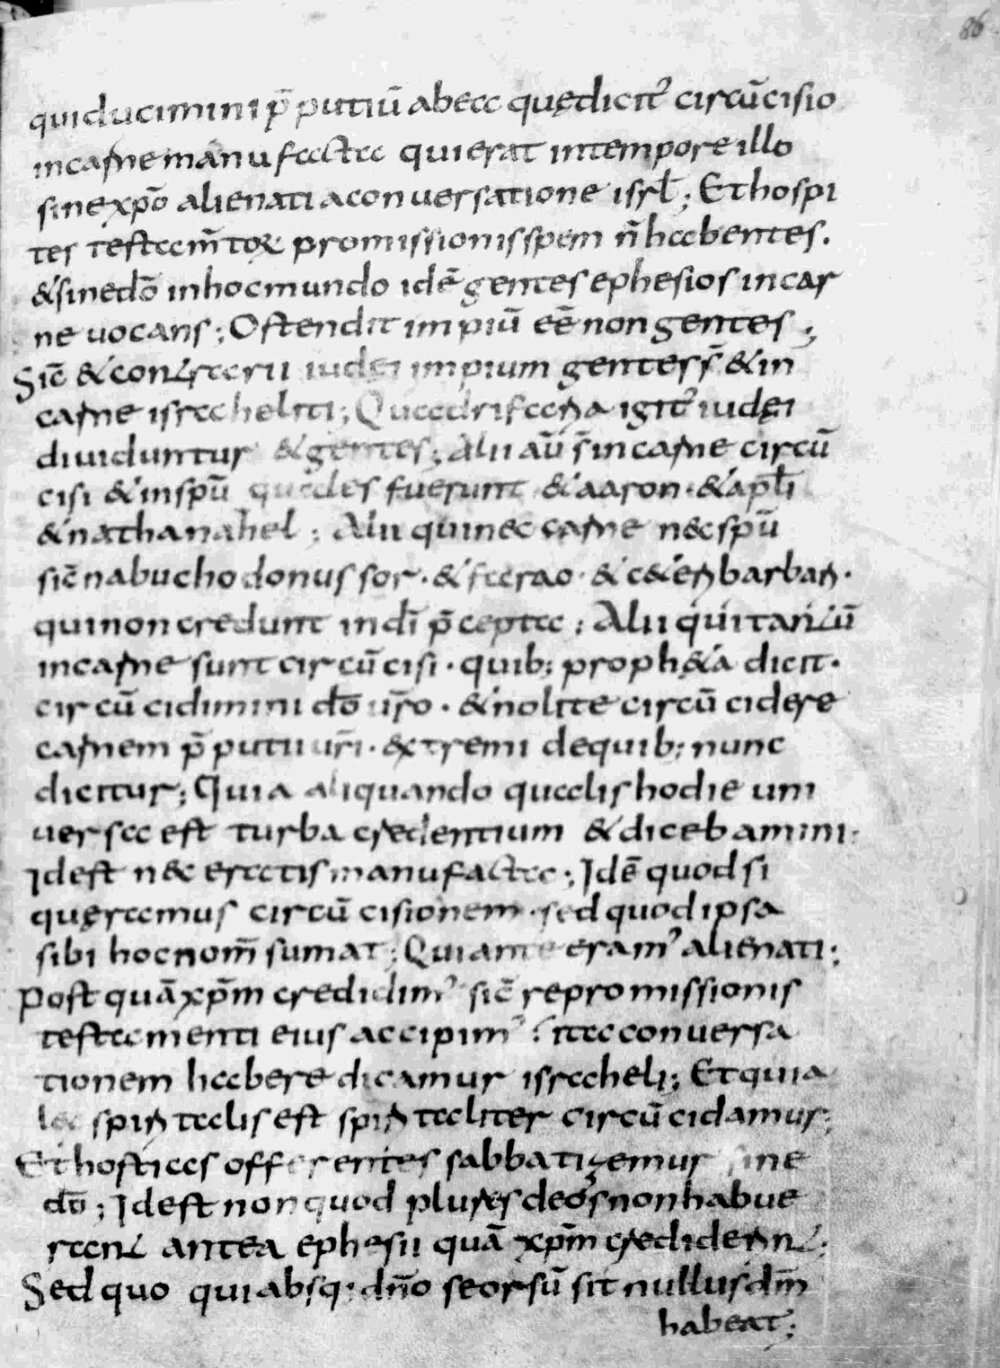 86
qui ducimini p̄putiū abea quę dicit᷒ circūcisio
in carne manu facta qui erat in tempore illo
sine xp̄o alienati a conuersatione isrl̄; Et hospi
tes testam̄torꝝ promissionis spem n̄ habentes.
& sine dō in hoc mundo idē gentes ephesios in car
ne uocans; Ostendit impiū eē non gentes;
Sic̄ & contrarii iudei impium gentes s̄ & in
carne israheliti; Quadrifaria igit᷒ iudęi
diuiduntur & gentes; Alii aū s̄ in carne circū
cisi & in spū quales fuerunt & aaron· & apl̄i
& nathanahel; Alii qui nec carne nec spū
sic̄ nabuchodonussor· & farao· & cęt̄ barbar̄·
qui non credunt in dī p̄cepta; Alii qui tantū
in carne sunt circūcisi· quib; proph&a dicit·
circūcidimini dō ur̄o· & nolite circūcidere
carnem p̄putii ur̄i· &xtremi de quib; nunc
dicitur; Quia aliquando qualis hodie uni
uersa est turba credentium & dicebamini·
Id est nec eratis manufacta; Idē quod si
quęramus circūcisionem· sed quod ipsa
sibi hoc nom̄ sumat; Qui ante eram᷒ alienati;
Post quā xp̄m credidim᷒ sic̄ repromissionis
testamenti eius accipim᷒ ita conuersa
tionem habere dicamur israheli; Et quia
lex spir̄talis est spir̄taliter circūcidamur;
Et hostias offerentes sabbatizemur sine
dō; Id est non quod plures deos non habue
rant antea ephesii quā xp̄m crediderint;
Sed quo qui absq; dn̄o seorsū sit nullus dm̄
habeat;